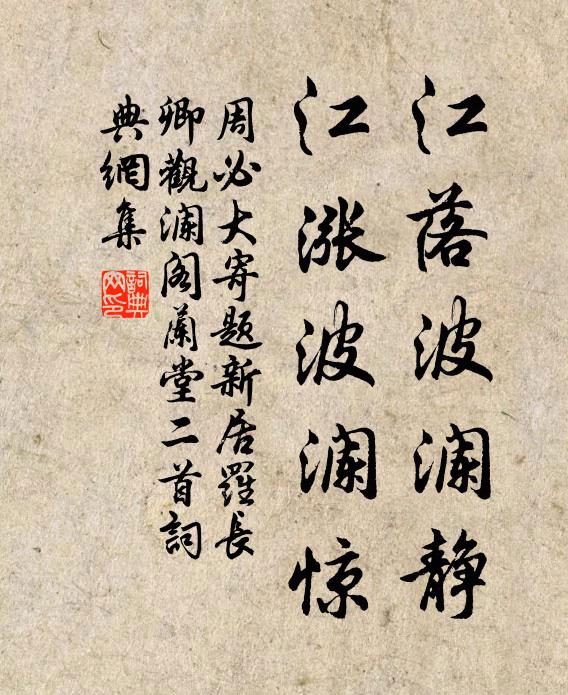 江落波澜静
江涨波澜惊
周必大寄题新居羅長
卿觀澜阁蘭堂二首詞
典網集
詞典
网印